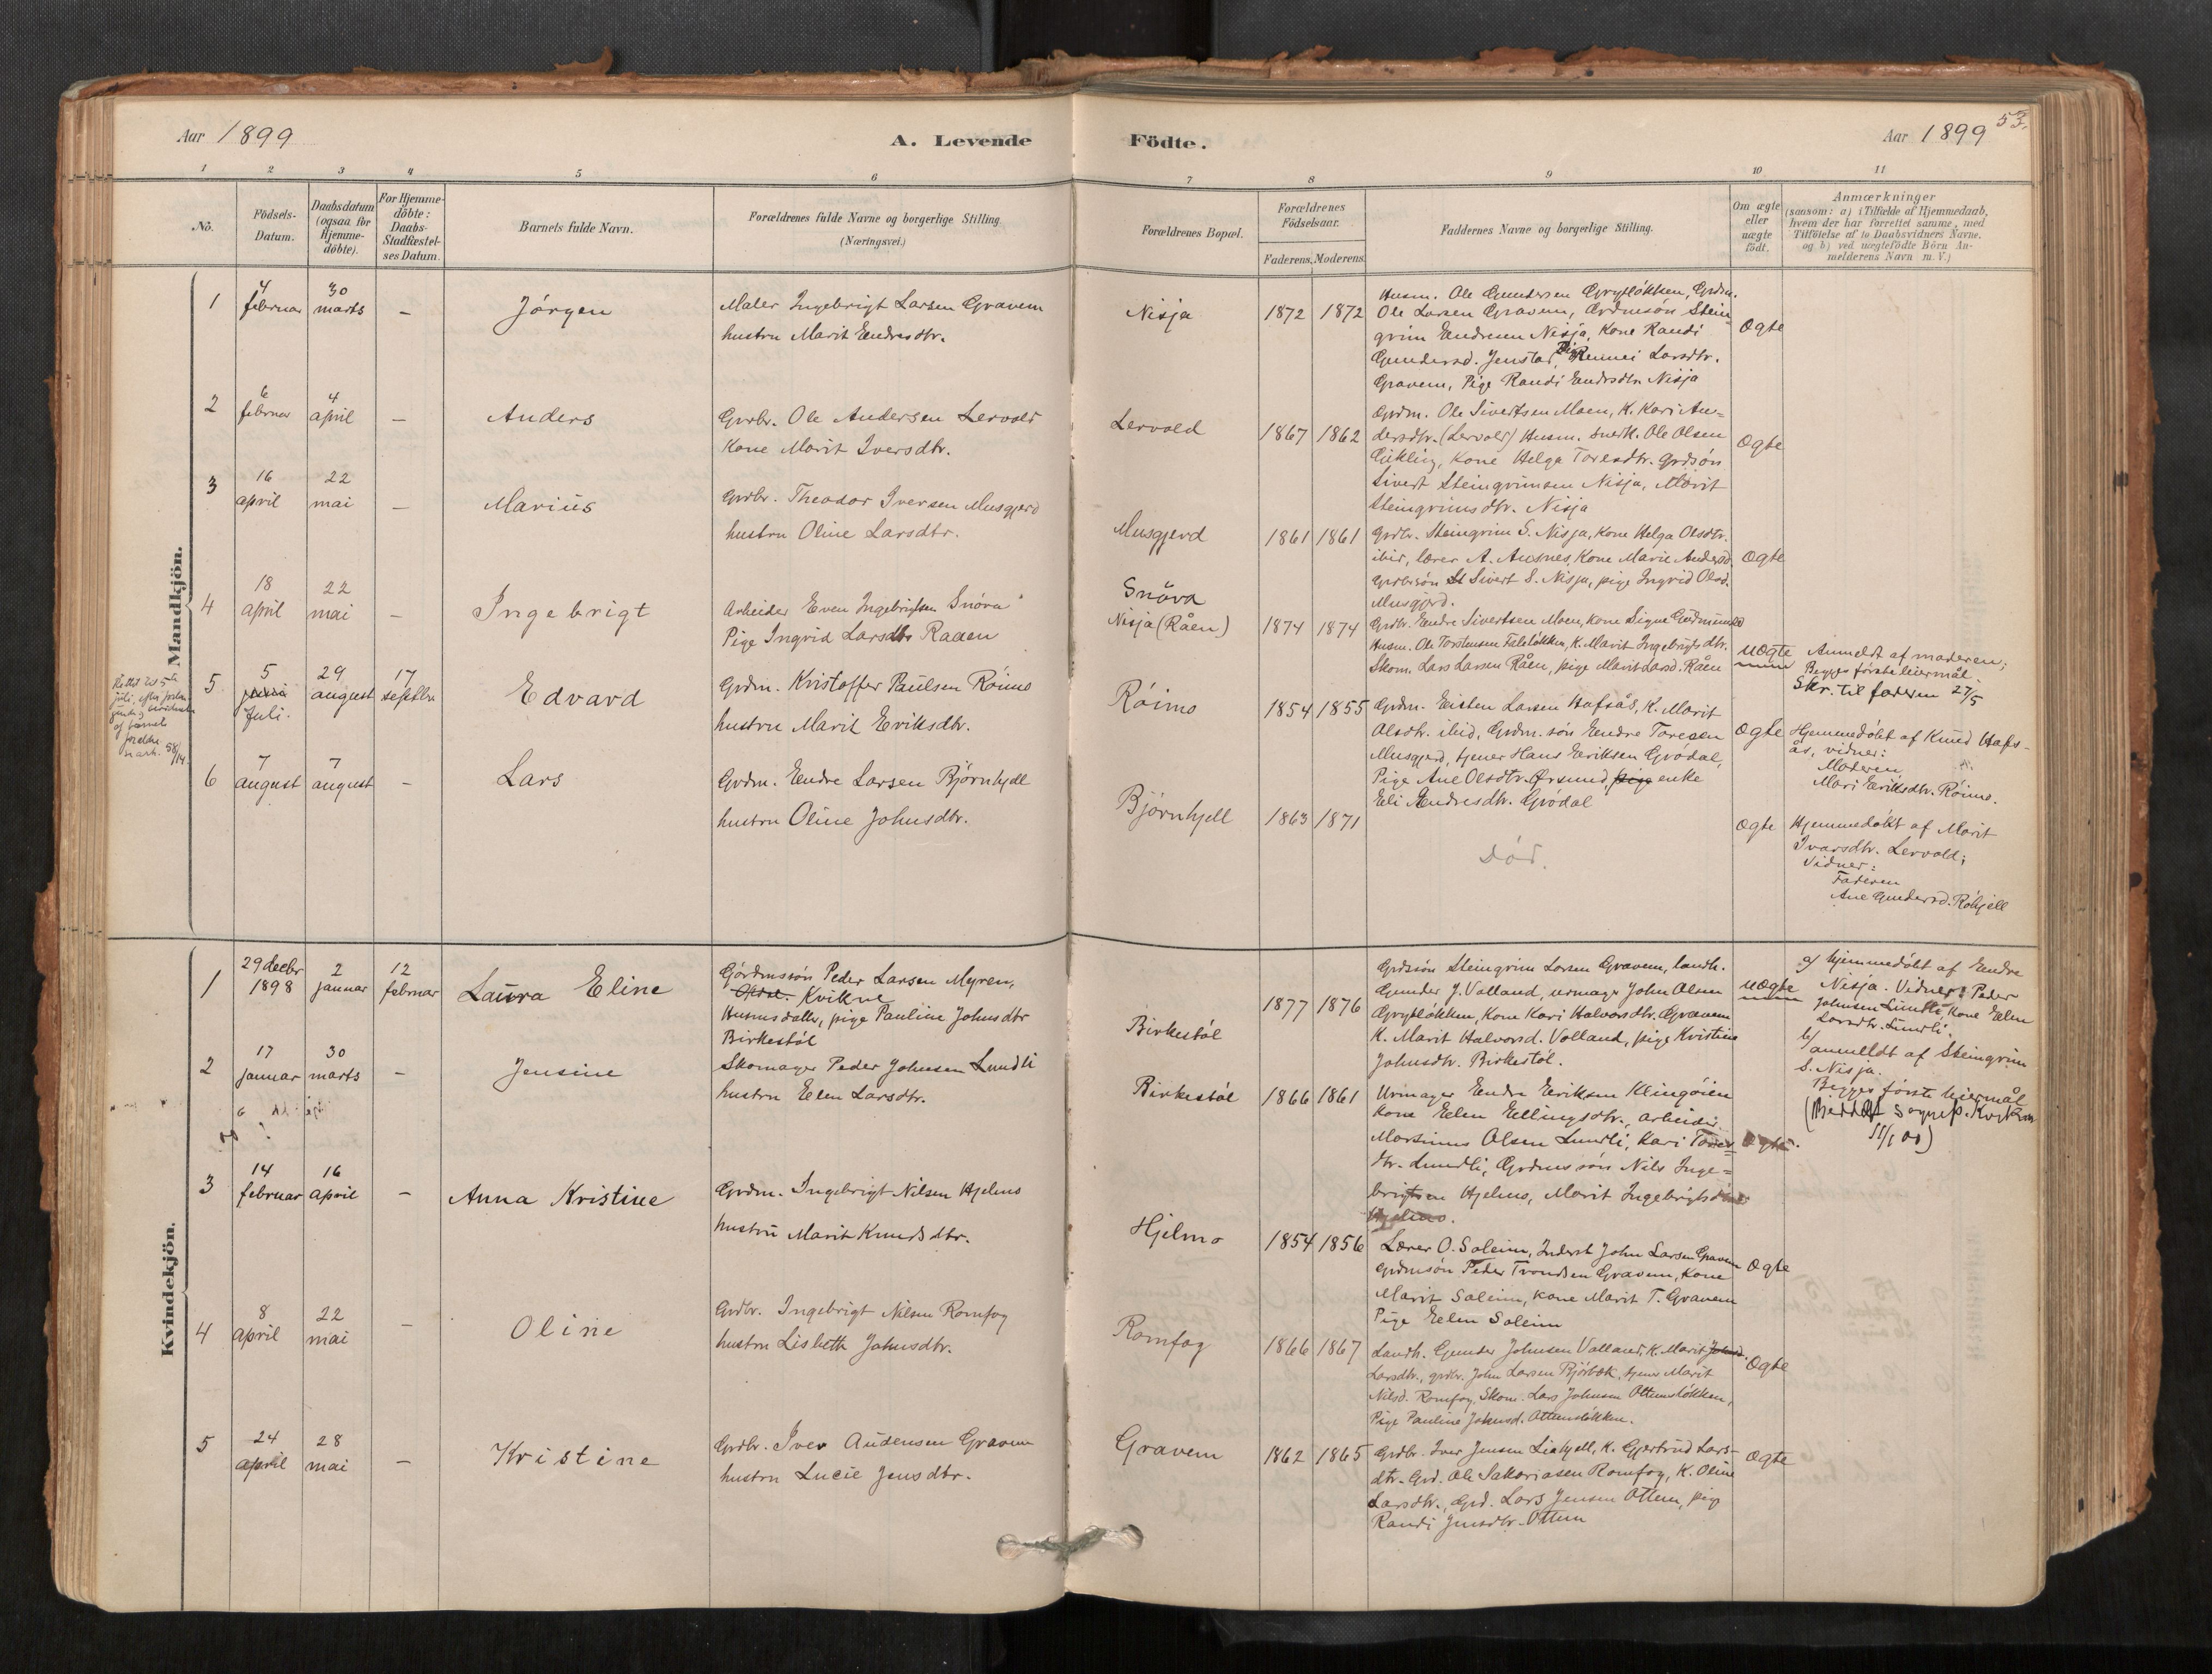 Aar 1899
A. Levende
Födte.
Aar 1899
53.
1 2 3 4 5 6 7 8 9 10 11
No.
Födsels-
Datum.
Daabsdatum
(ogsaa for
Hjemme-
döbte).
For Hjemme-
döbte:
Daabs-
Stadfæstel-
ses Datum.
Barnets fulde Navn.
Forældrenes fulde Navne og borgerlige Stilling.
(Næringsvei.)
Forældrenes Bopæl.
Forældrenes
Födselsaar.
Faderens. Moderens.
Faddernes Navne og borgerlige Stilling.
Om ægte
eller
uægte
födt.
Anmærkninger
(saasom: a) i Tilfælde af Hjemmedaab,
hvem der har forrettet samme, med
Tilföielse af to Daabsvidners Navne,
og b) ved uægtefödte Börn An-
melderens Navn m. V.)
Mandkjön.
1
4
februar
30
marts
–
Jörgen
Maler Ingebrigt Larsen Gravem
hustru Marit Endresdtr.
Nisja
1872 1872
Husm. Ole Gundersen Grytløkken, Grdm.
Ole Larsen Gravem, Grdmsön Stein-
grim Endresen Nisja, Kone Randi
Gundersd. Jenstad, Pige Rennei Larsdtr.
Gravem, Pige Randi Endrsdtr Nisja
Ægte
2
6
februar
4
april
–
Anders
Grdbr. Ole Andersen Lervold
Kone Marit Iversdtr.
Lervold
1867 1862
Grdm. Ole Sivertsen Moen, K. Kari An-
dersdtr. (Lervold) Husm. snedk. Ole Olsen
Kone Helga Toresdtr. grdsön
Sivert Steingrimsen Nisja, Marit
Steingrimsdtr. Nisja
Ægte
3
16
april
22
mai
–
Marius
Grdbr. Theodor Iversen Musgjerd
hustru Oline Larsdtr.
Musgjerd
1861 1861
Grdbr. Steingrim S. Nisja, Kone Helga Olsdtr.
ibid, lærer A. Ausnes, Kone Marie Andersd.
Grdbrsön Sivert S. Nisja, pige Ingrid Olsd.
Musgjerd.
Ægte
4
18
april
22
mai
–
Ingebrigt
Arbeider Even Ingebrigtsen Snöva
Pige Ingrid Larsdtr Raaen
Snöva
Nisja (Råen)
1874 1874
Grdbr. Endre Sivertsen Moen, Kone Signe Gudmundsd
Husm. Ole Torstensen Faleløkken, K. Marit Ingebrigtsdtr.
Skom. Lars Larsen Råen, pige Marit Larsd. Råen
uægte
Anmeldt af moderen;
Begges første leiermål.
Skr. til faderen 27/5
5
5
Juli.
29
august
17
septbr
Edvard
Grdm. Kristoffer Paulsen Röimo
hustru Marit Eriksdtr.
Röimo
1854 1855
Grdm. Eisten Larsen Hafsås, K. Marit
Olsdtr. ibid, Grdm. sön Endre Toresen
Musgjerd, tjener Hans Eriksen Grödal,
Pige Ane Olsdtr. Örsund, pige enke
Eli Endresdtr. Grödal
Ægte
Hjemmedöbt af Knud Hafs-
ås, vidner:
Moderen
Mari Eriksdtr. Röimo.
6
7
august
7
august
–
Lars
Grdm. Endre Larsen Björnhjell
hustru Oline Johnsdtr.
Björnhjell
1863 1871
Död.
Ægte
Hjemmedöbt af Marit
Ivarsdtr. Lervold;
Vidner:
Faderen
Ane Gundersd. Röhjell
Kvindekjön.
1
29 decbr
1898
2
januar
12
februar
Laura Eline
Gårdmssön Peder Larsen Myren,
Kvikne
Husmsdatter, pige Pauline Johnsdtr
Birkestöl
Birkestöl
1877 1876
Grdssön Steingrim Larsen Gravem, landh.
Gunder J. Volland, urmager John Olsen
Grytløkken, Kone Kari Halvorsdtr. Gravem
K. Marit Halvorsd. Volland, pige Kristine
Johnsdtr. Birkestöl.
uægte
a/ hjemmedöbt af Endre
Nisja. Vidner: Peder
Johnsen Lundli, Kone Eelen
Larsdtr. Lundli.
b/ anmeldt af Steingrim
S. Nisja.
Begges første leiermål
2
17
januar
30
marts
–
Jensine
Skomager Peder Johnsen Lundli
hustru Eelen Larsdtr.
Birkestöl
1866 1861
Urmager Endre Eriksen Klingöien
Kone Eelen Ellingsdtr., arbeider
Martinus Olsen Lundli, Kari Tores-
dtr. Lundli, Grdmssön Nils Inge-
brigtsen Hjelmo, Marit Ingebrigtsdtr
Hjelmo.
Ægte.
3
14
februar
16
april
–
Anna Kristine
Grdm. Ingebrigt Nilsen Hjelmo
hustru Marit Knudsdtr.
Hjelmo
1854 1856
Lærer O. Soleim, Inderst John Larsen Gravem
Grdmsön Peder Trondsen Gravem, Kone
Marit Soleim, Kone Marit T. Gravem
Pige Eelen Soleim
Ægte
4
8
april
22
mai
–
Oline
Grdbr. Ingebrigt Nilsen Romfog
hustru Lisbeth Johnsdtr.
Romfog
1866 1867
Landh. Gunder Johnsen Volland, K. Marit
Larsdtr., grdbr. John Larsen Björbæk, tjener Marit
Nilsd. Romfog, Skom. Lars Johnsen Ottemsløkken,
Pige Pauline Johnsd. Ottemsløkken.
Ægte
5
24
april
28
mai
–
Kristine
Grdbr. Iver Audensen Gravem
hustru Lucie Jensdtr.
Gravem
1862 1865
Grdbr. Iver Jensen Liahjell, K. Gjertrud Lars-
dtr. Grd. Ole Sakariasen Romfog, K. Oline
Larsdtr., Grd. Lars Jensen Ottem, pige
Randi Jensdtr. Ottem
Ægte